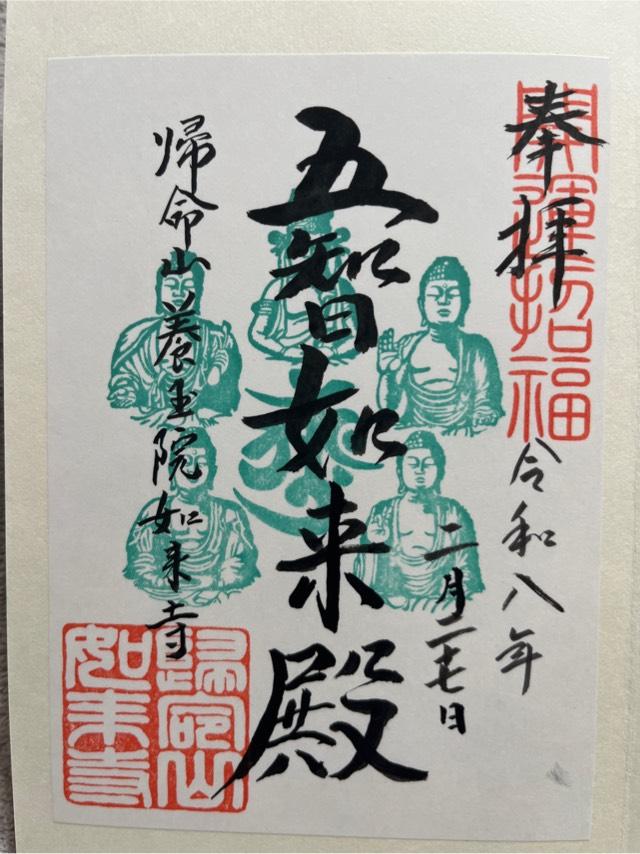 奉拝
開運招福
令和八年
二月二十七日
五智如来殿
帰命山養玉院如来寺
歸命山
如来寺